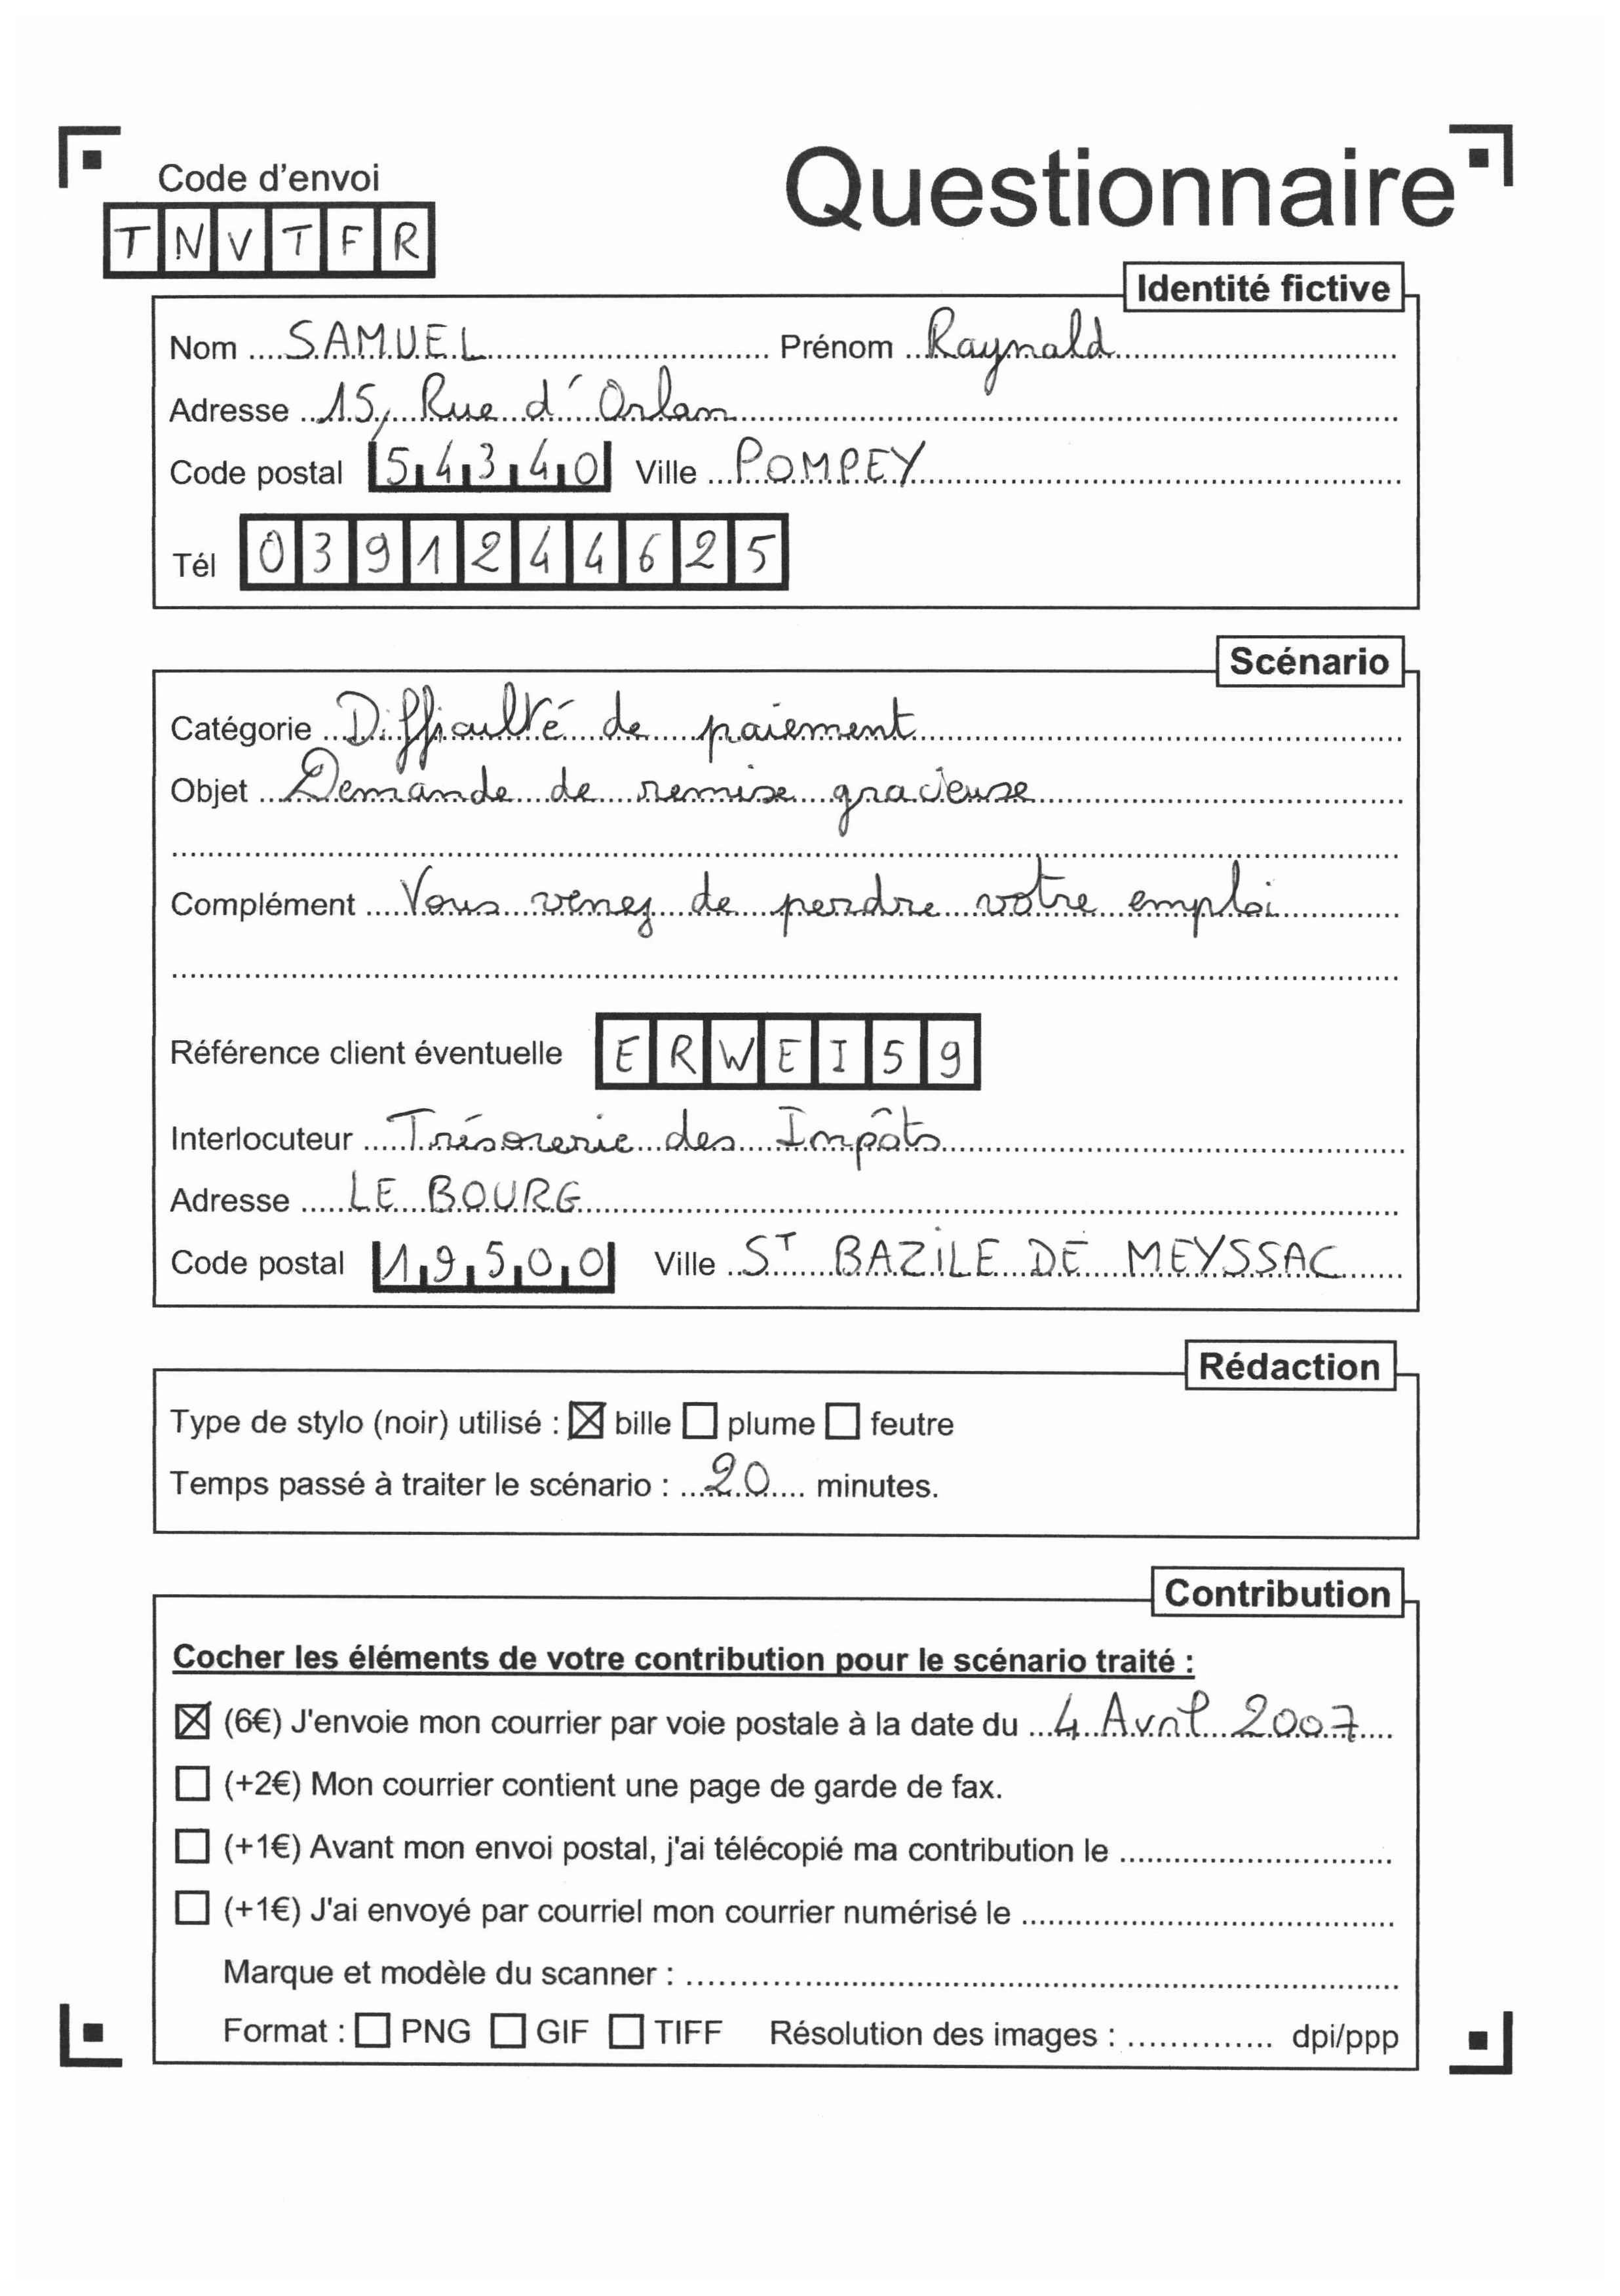 Code d'envoi
Questionnaire
TNVTFR
Identité fictive
Nom SAMUEL Prénom Raynald
Adresse 15, Rue d'Orlan
Code postal 54340 Ville POMPEY
Tél 0391244625
Scénario
Catégorie Difficulté de paiement
Objet Demande de remise gracieuse
Complément Vous venez de perdre votre emploi
Référence client éventuelle ERWEI59
Interlocuteur Trésorerie des Impôts
Adresse LE BOURG
Code postal 19500 Ville ST BAZILE DE MEYSSAC
Rédaction
Type de stylo (noir) utilisé : ☒ bille ☐ plume ☐ feutre
Temps passé à traiter le scénario : 20 minutes.
Contribution
Cocher les éléments de votre contribution pour le scénario traité :
☒ (6€) J'envoie mon courrier par voie postale à la date du 4 Avril 2007
☐ (+2€) Mon courrier contient une page de garde de fax.
☐ (+1€) Avant mon envoi postal, j'ai télécopié ma contribution le
☐ (+1€) J'ai envoyé par courriel mon courrier numérisé le
Marque et modèle du scanner :
Format : ☐ PNG ☐ GIF ☐ TIFF Résolution des images : dpi/ppp